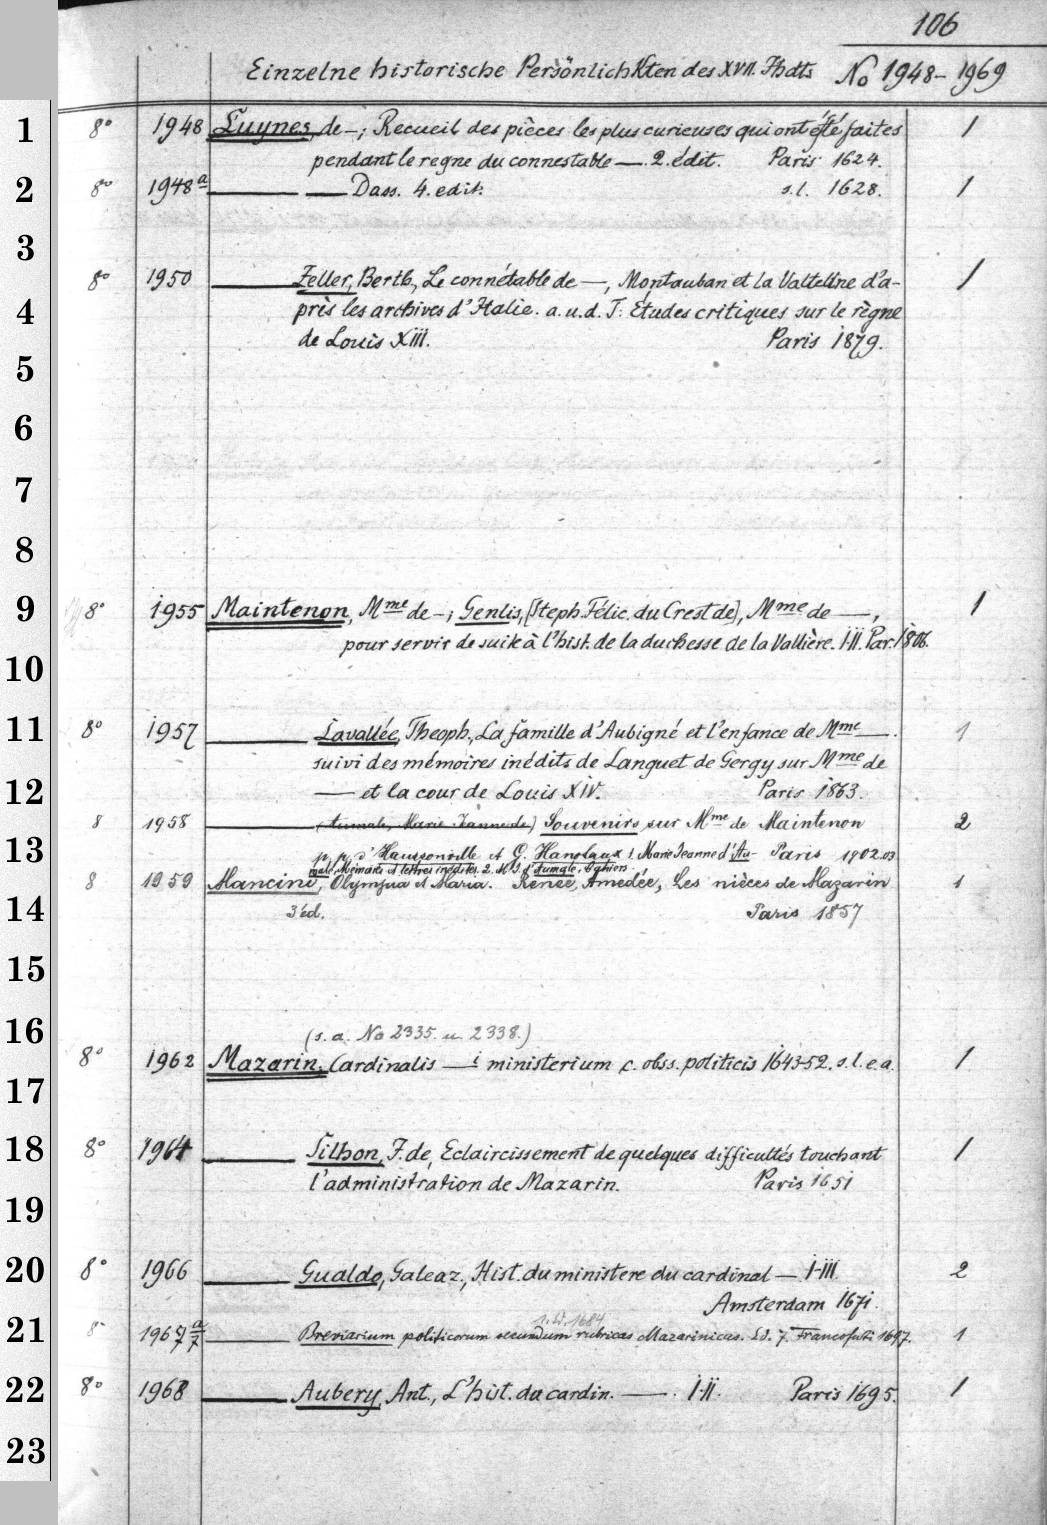 106
Einzelne historische PersönlichKten des XVII. Jhdts No 1948-1969
1 8° 1948 Luynes, de -; Recueil des pièces les plus curieuses qui ont été faites 1
pendant le regne du connestable —. 2. édit. Paris 1624.
2 8° 1948a — — Dass. 4. edit. s.l. 1628. 1
3
8° 1950 — Zeller, Berth., Le connétable de —, Montauban et la Valteline d'a- 1
4 près les archives d'Italie. a.u.d.T: Etudes critiques sur le règne
de Louis XIII. Paris 1879.
5
6
7
8
9 8° 1955 Maintenon, Mme de -; Genlis, [Steph. Félic. du Crest de], Mme de —, 1
pour servir de suite à l'hist. de la duchesse de la Vallière. I-II. Par. 1806.
10
11 8° 1957 — Lavallée, Theoph., La famille d'Aubigné et l'enfance de Mme —. 1
suivi des mémoires inédits de Languet de Gergy sur Mme de
12 — et la cour de Louis XIV. Paris 1863.
8 1958 — (Aumale, Marie Jeanne de) Souvenirs sur Mme de Maintenon 2
13 p. p. d'Haussonville et G. Hanotaux 1. Marie Jeanne d'Au- Paris 1902.03
male, Mémoire et lettres inédites. 2. M. J. d'Aumale, Cahiers
8 1959 Mancini, Olympia et Maria. Renée, Amedée, Les nièces de Mazarin 1
14 3 éd. Paris 1857
15
16 (s. a. No 2335. u. 2338.)
8° 1962 Mazarin. Cardinalis —i ministerium c. obss. politicis 1643-52. s.l.e.a. 1
17
18 8° 1964 — Silhon, J. de, Eclaircissement de quelques difficultés touchant 1
l'administration de Mazarin. Paris 1651
19
20 8° 1966 — Gualdo, Galeaz., Hist. du ministere du cardinal — I-III. 2
Amsterdam 1671.
1. Ed. 1684
21 8° 1967 a/7 — Breviarium politicorum secundum rubricas Mazarinicas. Ed. 7. Francofurti 1697. 1
22 8° 1968 — Aubery, Ant., L'hist. du cardin. —. I-II. Paris 1695. 1
23